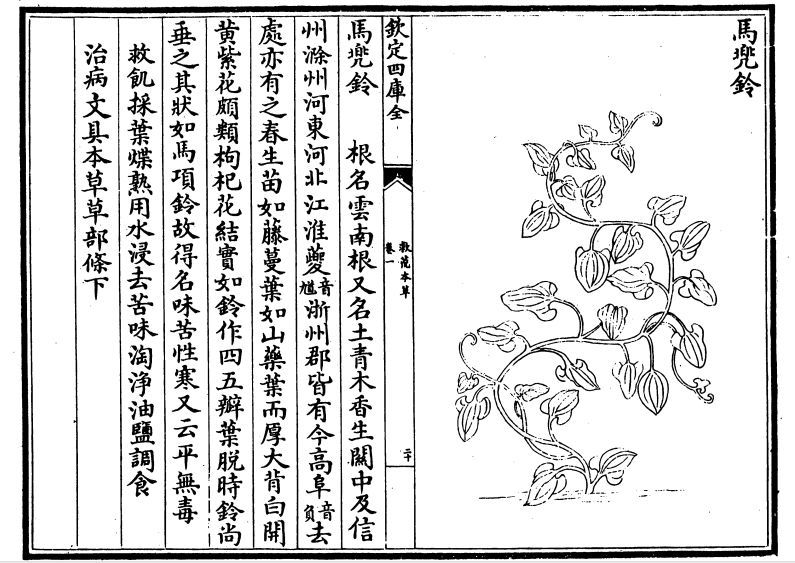 馬兜鈴
欽定四庫全
救荒本草
卷一
二十
馬兜鈴 根名雲南根又名土青木香生關中及信
州滁州河東河北江淮夔音馗浙州郡皆有今高阜音負去
處亦有之春生苗如藤蔓葉如山藥葉而厚大背白開
黃紫花頗類枸杞花結實如鈴作四五瓣葉脫時鈴尚
垂之其狀如馬項鈴故得名味苦性寒又云平無毒
救飢採葉煠熟用水浸去苦味淘淨油鹽調食
治病文具本草草部條下